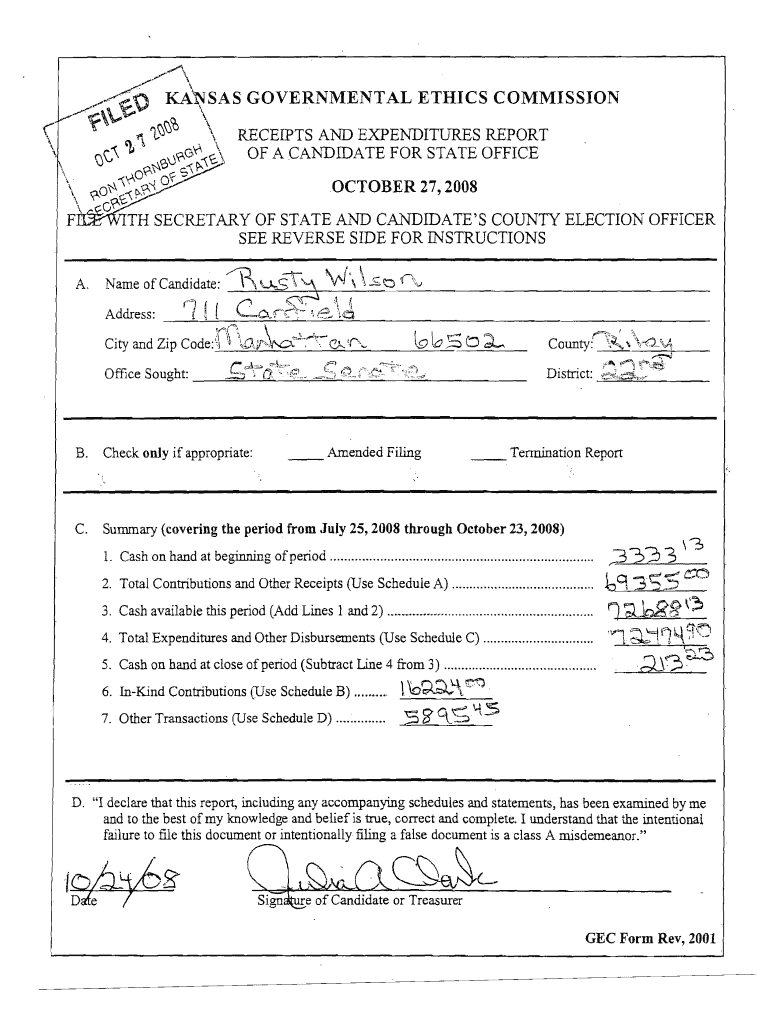 FILED
OCT 27 2008
RON THORNBURGH
SECRETARY OF STATE
KANSAS GOVERNMENTAL ETHICS COMMISSION
RECEIPTS AND EXPENDITURES REPORT
OF A CANDIDATE FOR STATE OFFICE
OCTOBER 27, 2008
FILE WITH SECRETARY OF STATE AND CANDIDATE'S COUNTY ELECTION OFFICER
SEE REVERSE SIDE FOR INSTRUCTIONS
A. Name of Candidate: Rusty Wilson
Address: 711 Canfield
City and Zip Code: Manhattan 66502 County: Riley
Office Sought: State Senate District: 22nd
B. Check only if appropriate: ____ Amended Filing ____ Termination Report
C. Summary (covering the period from July 25, 2008 through October 23, 2008)
1. Cash on hand at beginning of period ........ 3333 13
2. Total Contributions and Other Receipts (Use Schedule A) ........ 69355 00
3. Cash available this period (Add Lines 1 and 2) ........ 72688 13
4. Total Expenditures and Other Disbursements (Use Schedule C) ........ 72474 90
5. Cash on hand at close of period (Subtract Line 4 from 3) ........ 213 23
6. In-Kind Contributions (Use Schedule B) ......... 16224 00
7. Other Transactions (Use Schedule D) ............. 5895 45
D. "I declare that this report, including any accompanying schedules and statements, has been examined by me
and to the best of my knowledge and belief is true, correct and complete. I understand that the intentional
failure to file this document or intentionally filing a false document is a class A misdemeanor."
10/24/08 Julia A Clark
Date Signature of Candidate or Treasurer
GEC Form Rev, 2001